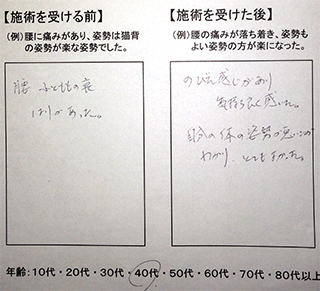 【施術を受ける前】
(例)腰に痛みがあり、姿勢は猫背
の姿勢が楽な姿勢でした。
腰 ふとももの裏
はりがあった。
【施術を受けた後】
(例)腰の痛みが落ち着き、姿勢も
よい姿勢の方が楽になった。
のびた感じがあり
気持ちよく感いた。
自分の体の姿勢の悪いのが
わかり とてもよかった。
年齢:10代・20代・30代・40代・50代・60代・70代・80代以上